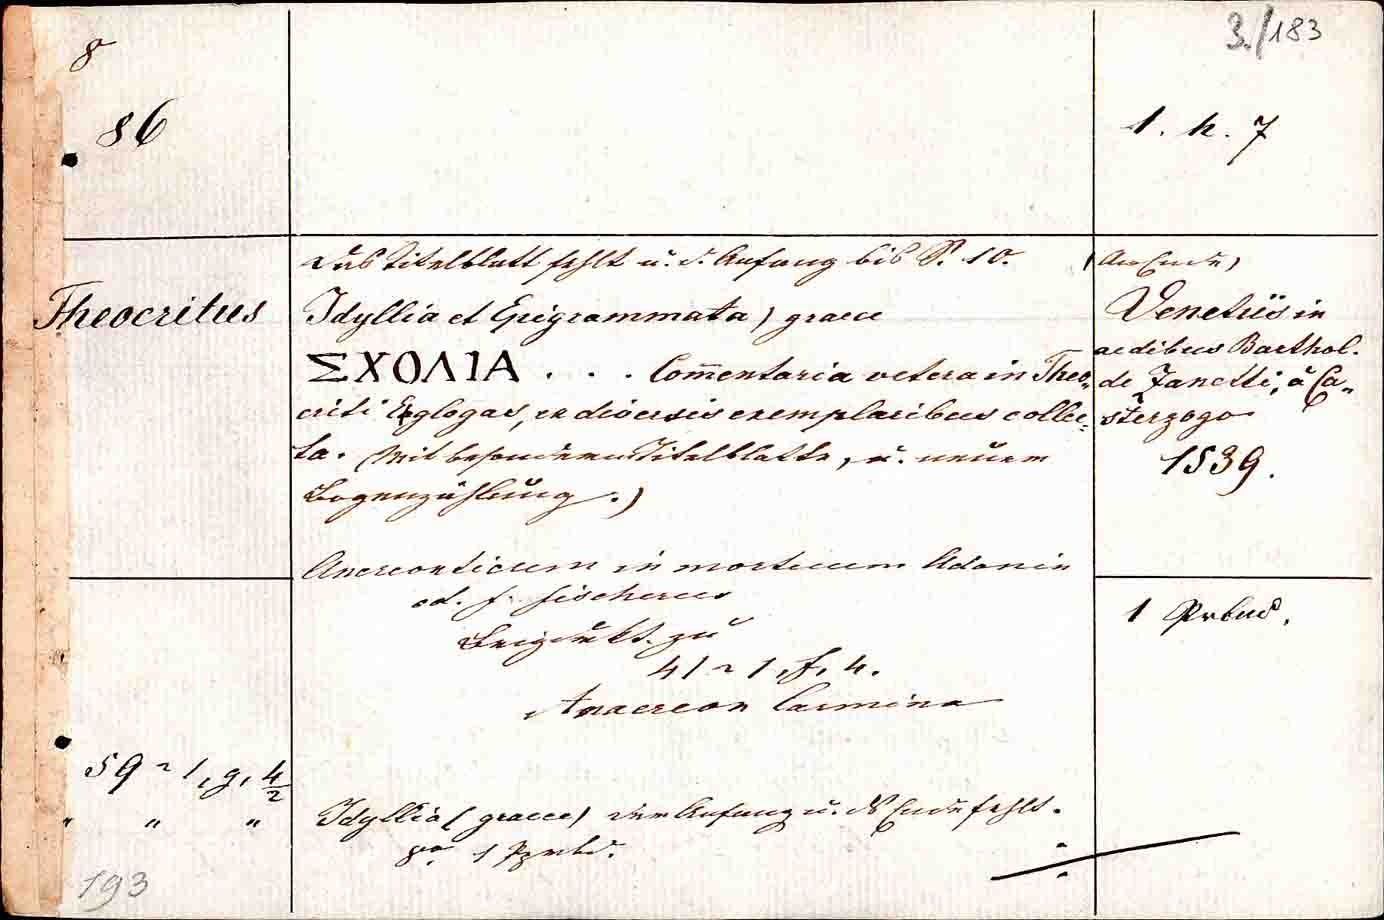 3./183
8°
86
1. h. 7
Theocritus
Das Titelblatt fehlt u. d. Anfang bis S. 10.
Idyllia et Epigrammata) graece
ΣΧΟΛΙΑ . . . Com̄entaria vetera in Theo-
criti Egglogas, ex diversis exemplaribus collec-
ta. (Mit besonderem Titelblatte, u. neuer
Bogenzählung.)
(Am Ende)
Venetiis in
aedibus Barthol.
de Zanetti, à Ca-
sterzogo
1539.
Anacreonticum in mortuum Adonin
ed. f. fischerus
Beigedrkt. zu
41~1, f, 4.
Anacreon Carmina
1 Prbnd.
59~1, g, 4/2
" " "
Idyllia (graece) der Anfang u. das Ende fehlt.
8° 1 Pprbd.
193